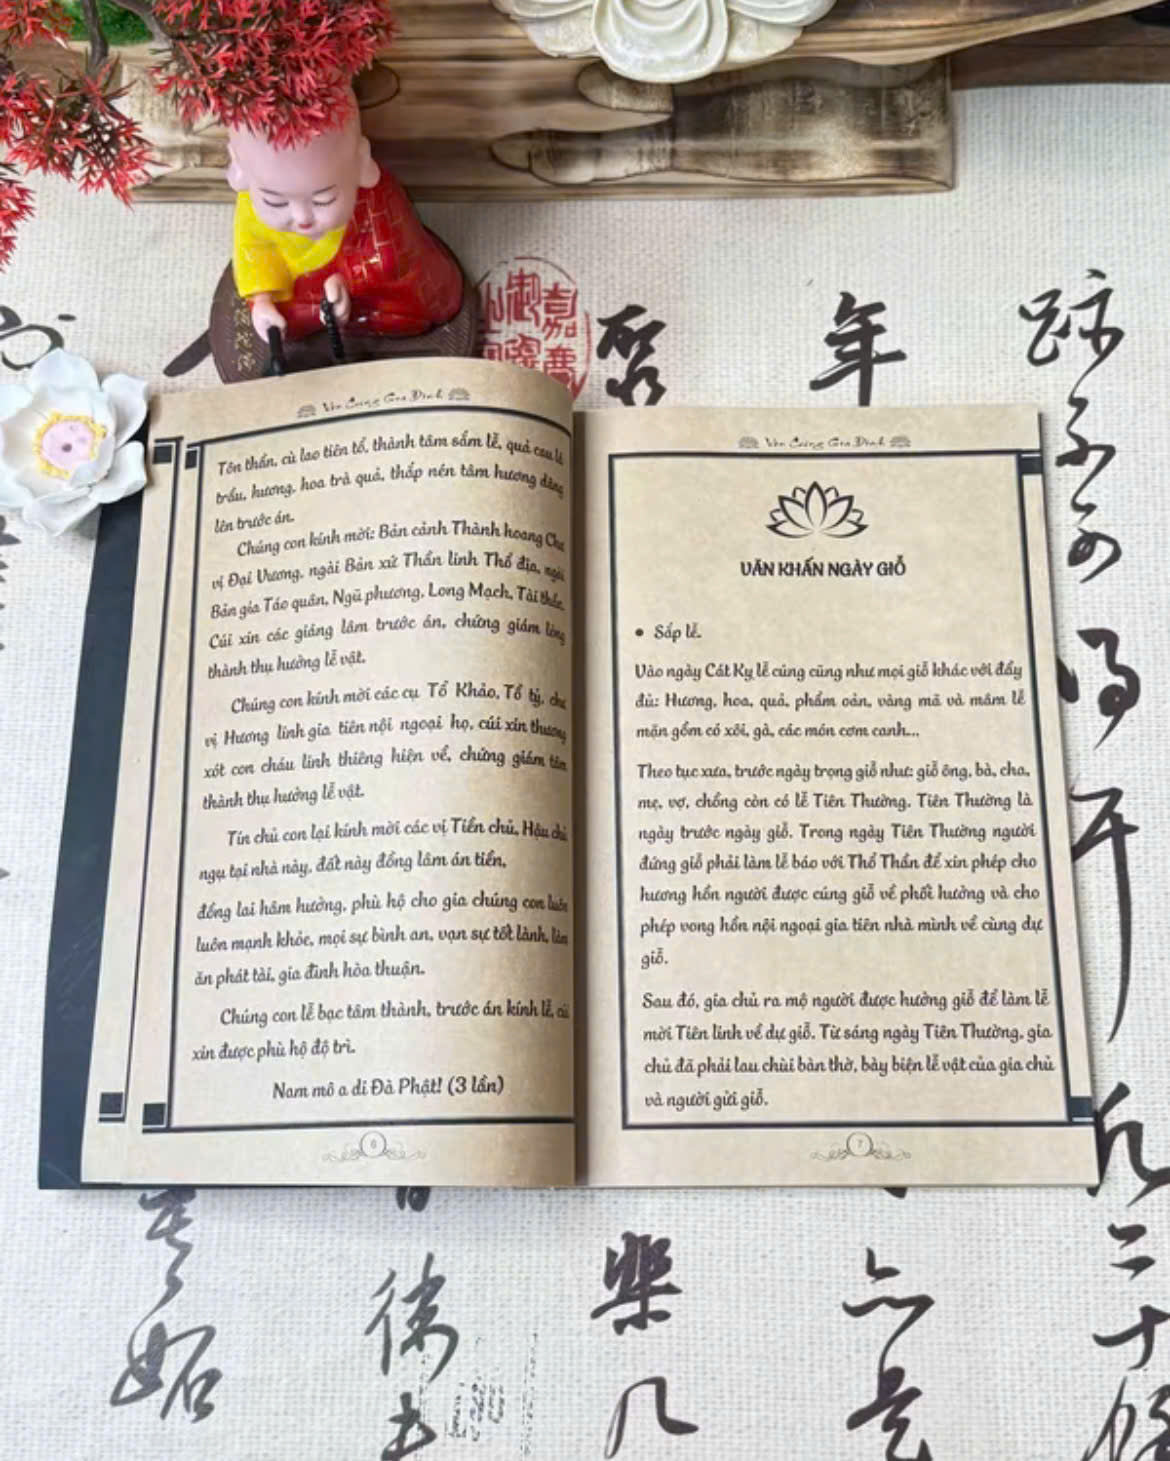 Văn Cúng Gia Đình
Tôn thần, cù lao tiên tổ, thành tâm sắm lễ, quả cau lá
trầu, hương, hoa trà quả, thắp nén tâm hương dâng
lên trước án.
Chúng con kính mời: Bản cảnh Thành hoang Chư
vị Đại Vương, ngài Bản xứ Thần linh Thổ địa, ngài
Bản gia Táo quân, Ngũ phương, Long Mạch, Tài thần,
Cúi xin các giáng lâm trước án, chứng giám lòng
thành thụ hưởng lễ vật.
Chúng con kính mời các cụ Tổ Khảo, Tổ tỷ, chư
vị Hương linh gia tiên nội ngoại họ, cúi xin thương
xót con cháu linh thiêng hiện về, chứng giám tâm
thành thụ hưởng lễ vật.
Tín chủ con lại kính mời các vị Tiền chủ, Hậu chủ
ngụ tại nhà này, đất này đồng lâm án tiền,
đồng lai hâm hưởng, phù hộ cho gia chúng con luôn
luôn mạnh khỏe, mọi sự bình an, vạn sự tốt lành, làm
ăn phát tài, gia đình hòa thuận.
Chúng con lễ bạc tâm thành, trước án kính lễ, cúi
xin được phù hộ độ trì.
Nam mô a di Đà Phật! (3 lần)
6
Văn Cúng Gia Đình
VĂN KHẤN NGÀY GIỖ
• Sắp lễ.
Vào ngày Cát Kỵ lễ cúng cũng như mọi giỗ khác với đầy
đủ: Hương, hoa, quả, phẩm oản, vàng mã và mâm lễ
mặn gồm có xôi, gà, các món cơm canh...
Theo tục xưa, trước ngày trọng giỗ như: giỗ ông, bà, cha,
mẹ, vợ, chồng còn có lễ Tiên Thường. Tiên Thường là
ngày trước ngày giỗ. Trong ngày Tiên Thường người
đứng giỗ phải làm lễ báo với Thổ Thần để xin phép cho
hương hồn người được cúng giỗ về phối hưởng và cho
phép vong hồn nội ngoại gia tiên nhà mình về cùng dự
giỗ.
Sau đó, gia chủ ra mộ người được hưởng giỗ để làm lễ
mời Tiên linh về dự giỗ. Từ sáng ngày Tiên Thường, gia
chủ đã phải lau chùi bàn thờ, bày biện lễ vật của gia chủ
và người gửi giỗ.
7
年